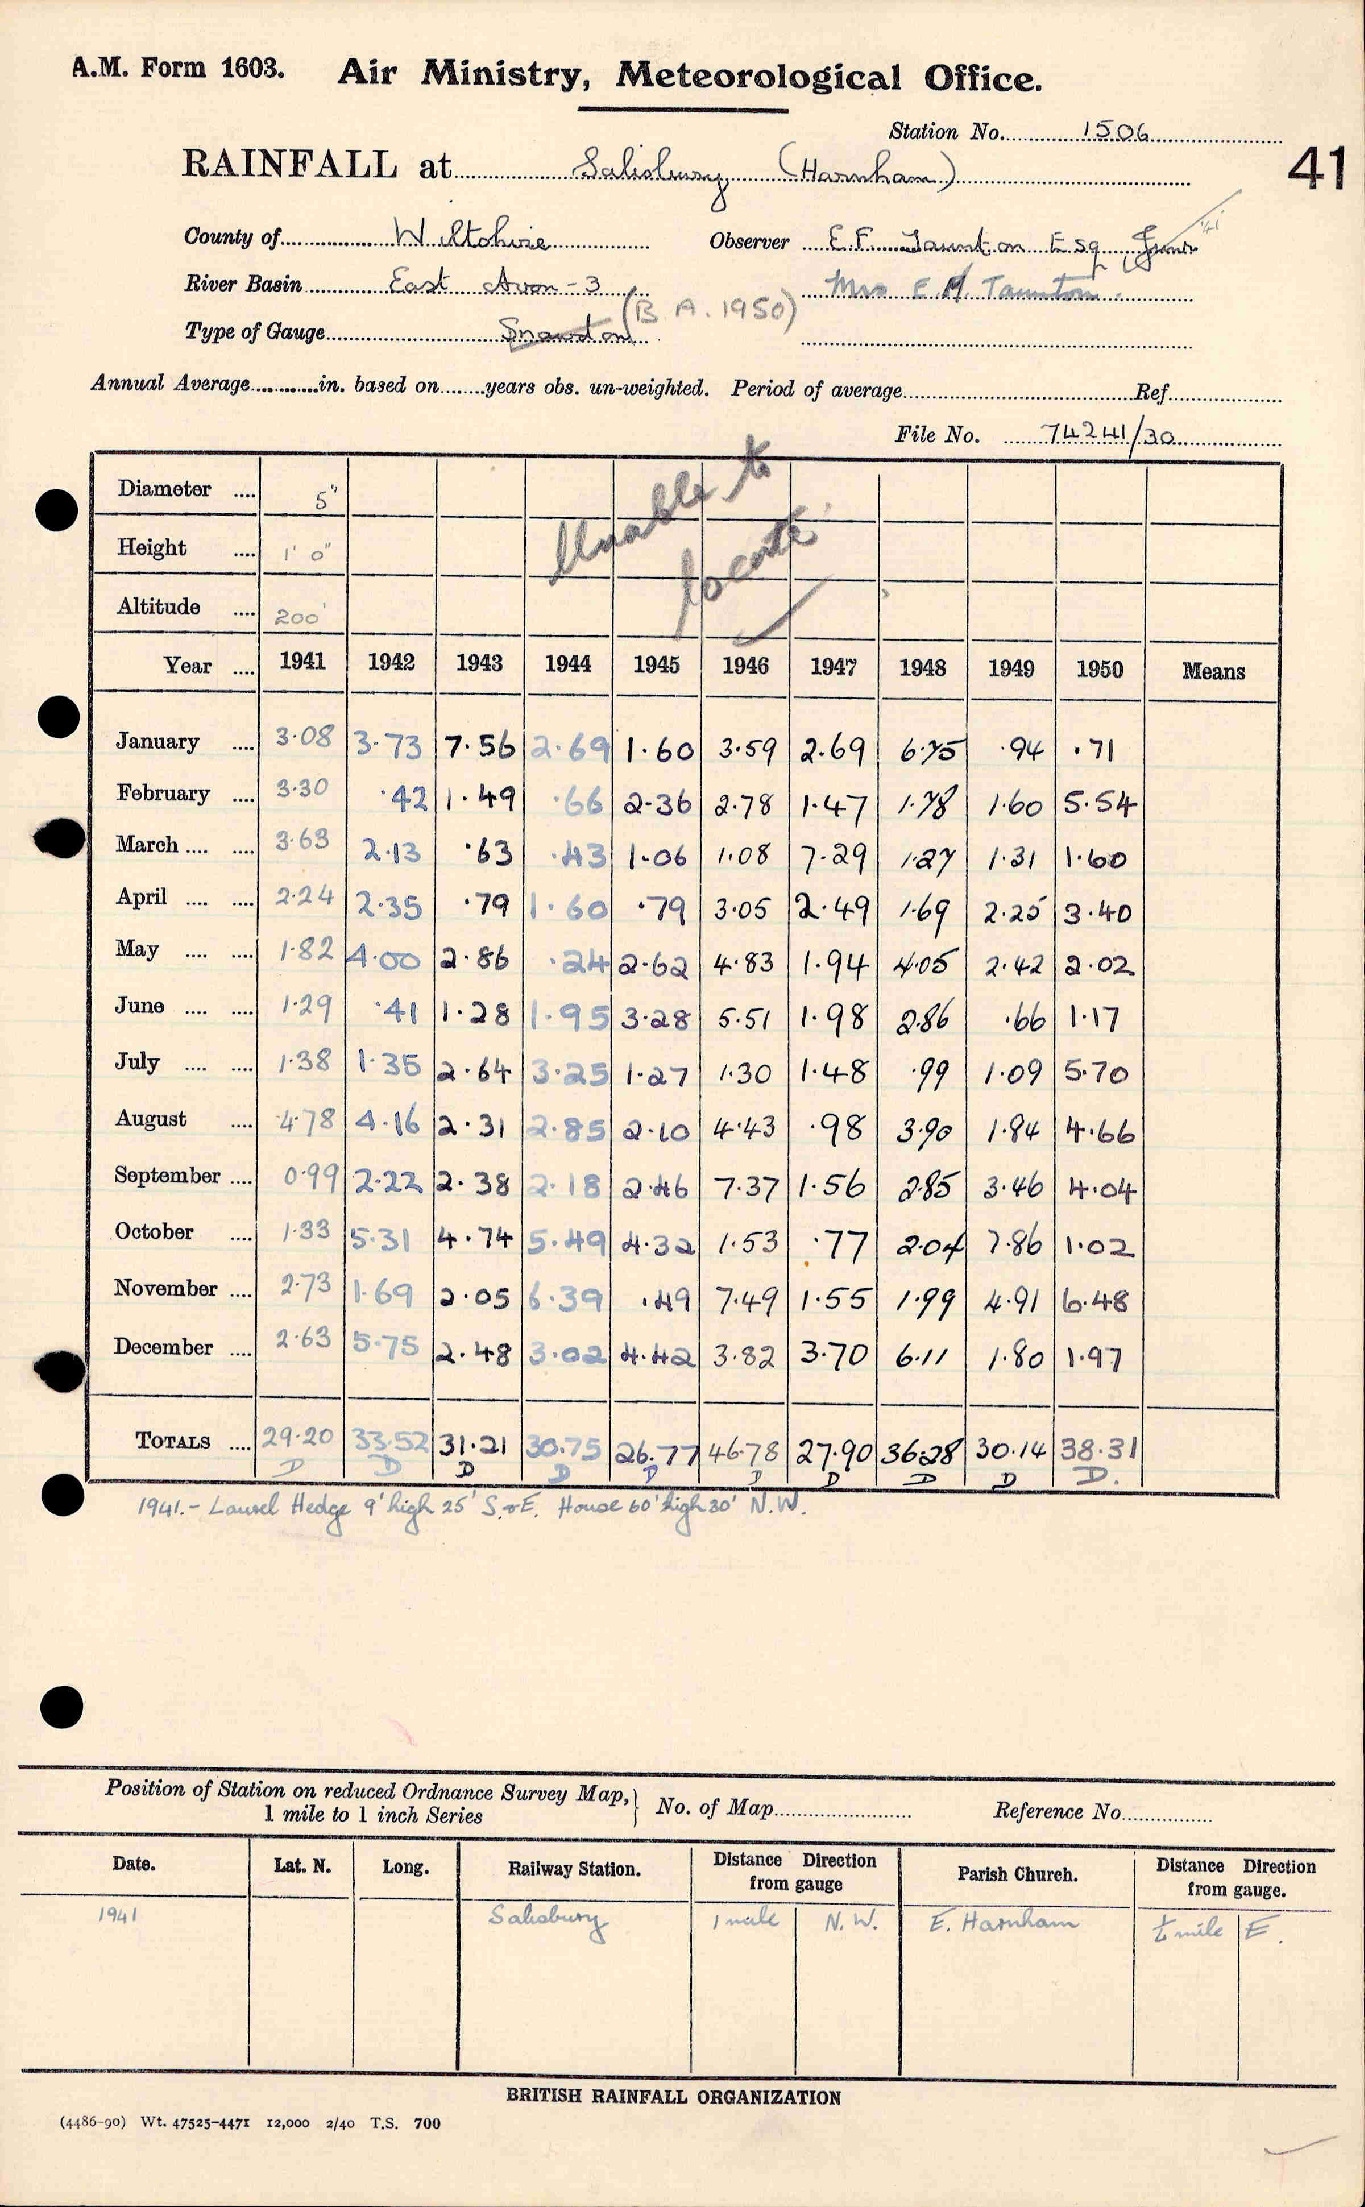 A.M. Form 1603. Air Ministry, Meteorological Office.
Station No. 1506
41
RAINFALL at Salisbury (Harnham)
County of Wiltshire Observer E.F. Taunton Esq
River Basin East Avon-3 Mrs E.M. Taunton.
Type of Gauge Snowdon (B A. 1950)
Annual Average in. based on years obs. un-weighted. Period of average Ref.
File No. 74241/30
Unable to locate
Diameter 5"
Height 1' 0"
Altitude 200'
Year 1941 1942 1943 1944 1945 1946 1947 1948 1949 1950 Means
January 3.08 3.73 7.56 2.69 1.60 3.59 2.69 6.75 .94 .71
February 3.30 .42 1.49 .66 2.36 2.78 1.47 1.78 1.60 5.54
March 3.63 2.13 .63 .43 1.06 1.08 7.29 1.27 1.31 1.60
April 2.24 2.35 .79 1.60 .79 3.05 2.49 1.69 2.25 3.40
May 1.82 4.00 2.86 .24 2.62 4.83 1.94 4.05 2.42 2.02
June 1.29 .41 1.28 1.95 3.28 5.51 1.98 2.86 .66 1.17
July 1.38 1.35 2.64 3.25 1.27 1.30 1.48 .99 1.09 5.70
August 4.78 4.16 2.31 2.85 2.10 4.43 .98 3.90 1.84 4.66
September 0.99 2.22 2.38 2.18 2.46 7.37 1.56 2.85 3.46 4.04
October 1.33 5.31 4.74 5.49 4.32 1.53 .77 2.04 7.86 1.02
November 2.73 1.69 2.05 6.39 .49 7.49 1.55 1.99 4.91 6.48
December 2.63 5.75 2.48 3.02 4.42 3.82 3.70 6.11 1.80 1.97
TOTALS 29.20 33.52 31.21 30.75 26.77 46.78 27.90 36.28 30.14 38.31
D D D D D D D D D D.
1941.- Laurel Hedge 9' high 25' S.&E. House 60' high 30' N.W.
Position of Station on reduced Ordnance Survey Map, 1 mile to 1 inch Series } No. of Map Reference No.
Date. Lat. N. Long. Railway Station. Distance Direction from gauge Parish Church. Distance Direction from gauge.
1941 Salisbury 1 mile N.W. E. Harnham ½ mile E.
BRITISH RAINFALL ORGANIZATION
(4486-90) Wt. 47525-4471 12,000 2/40 T.S. 700